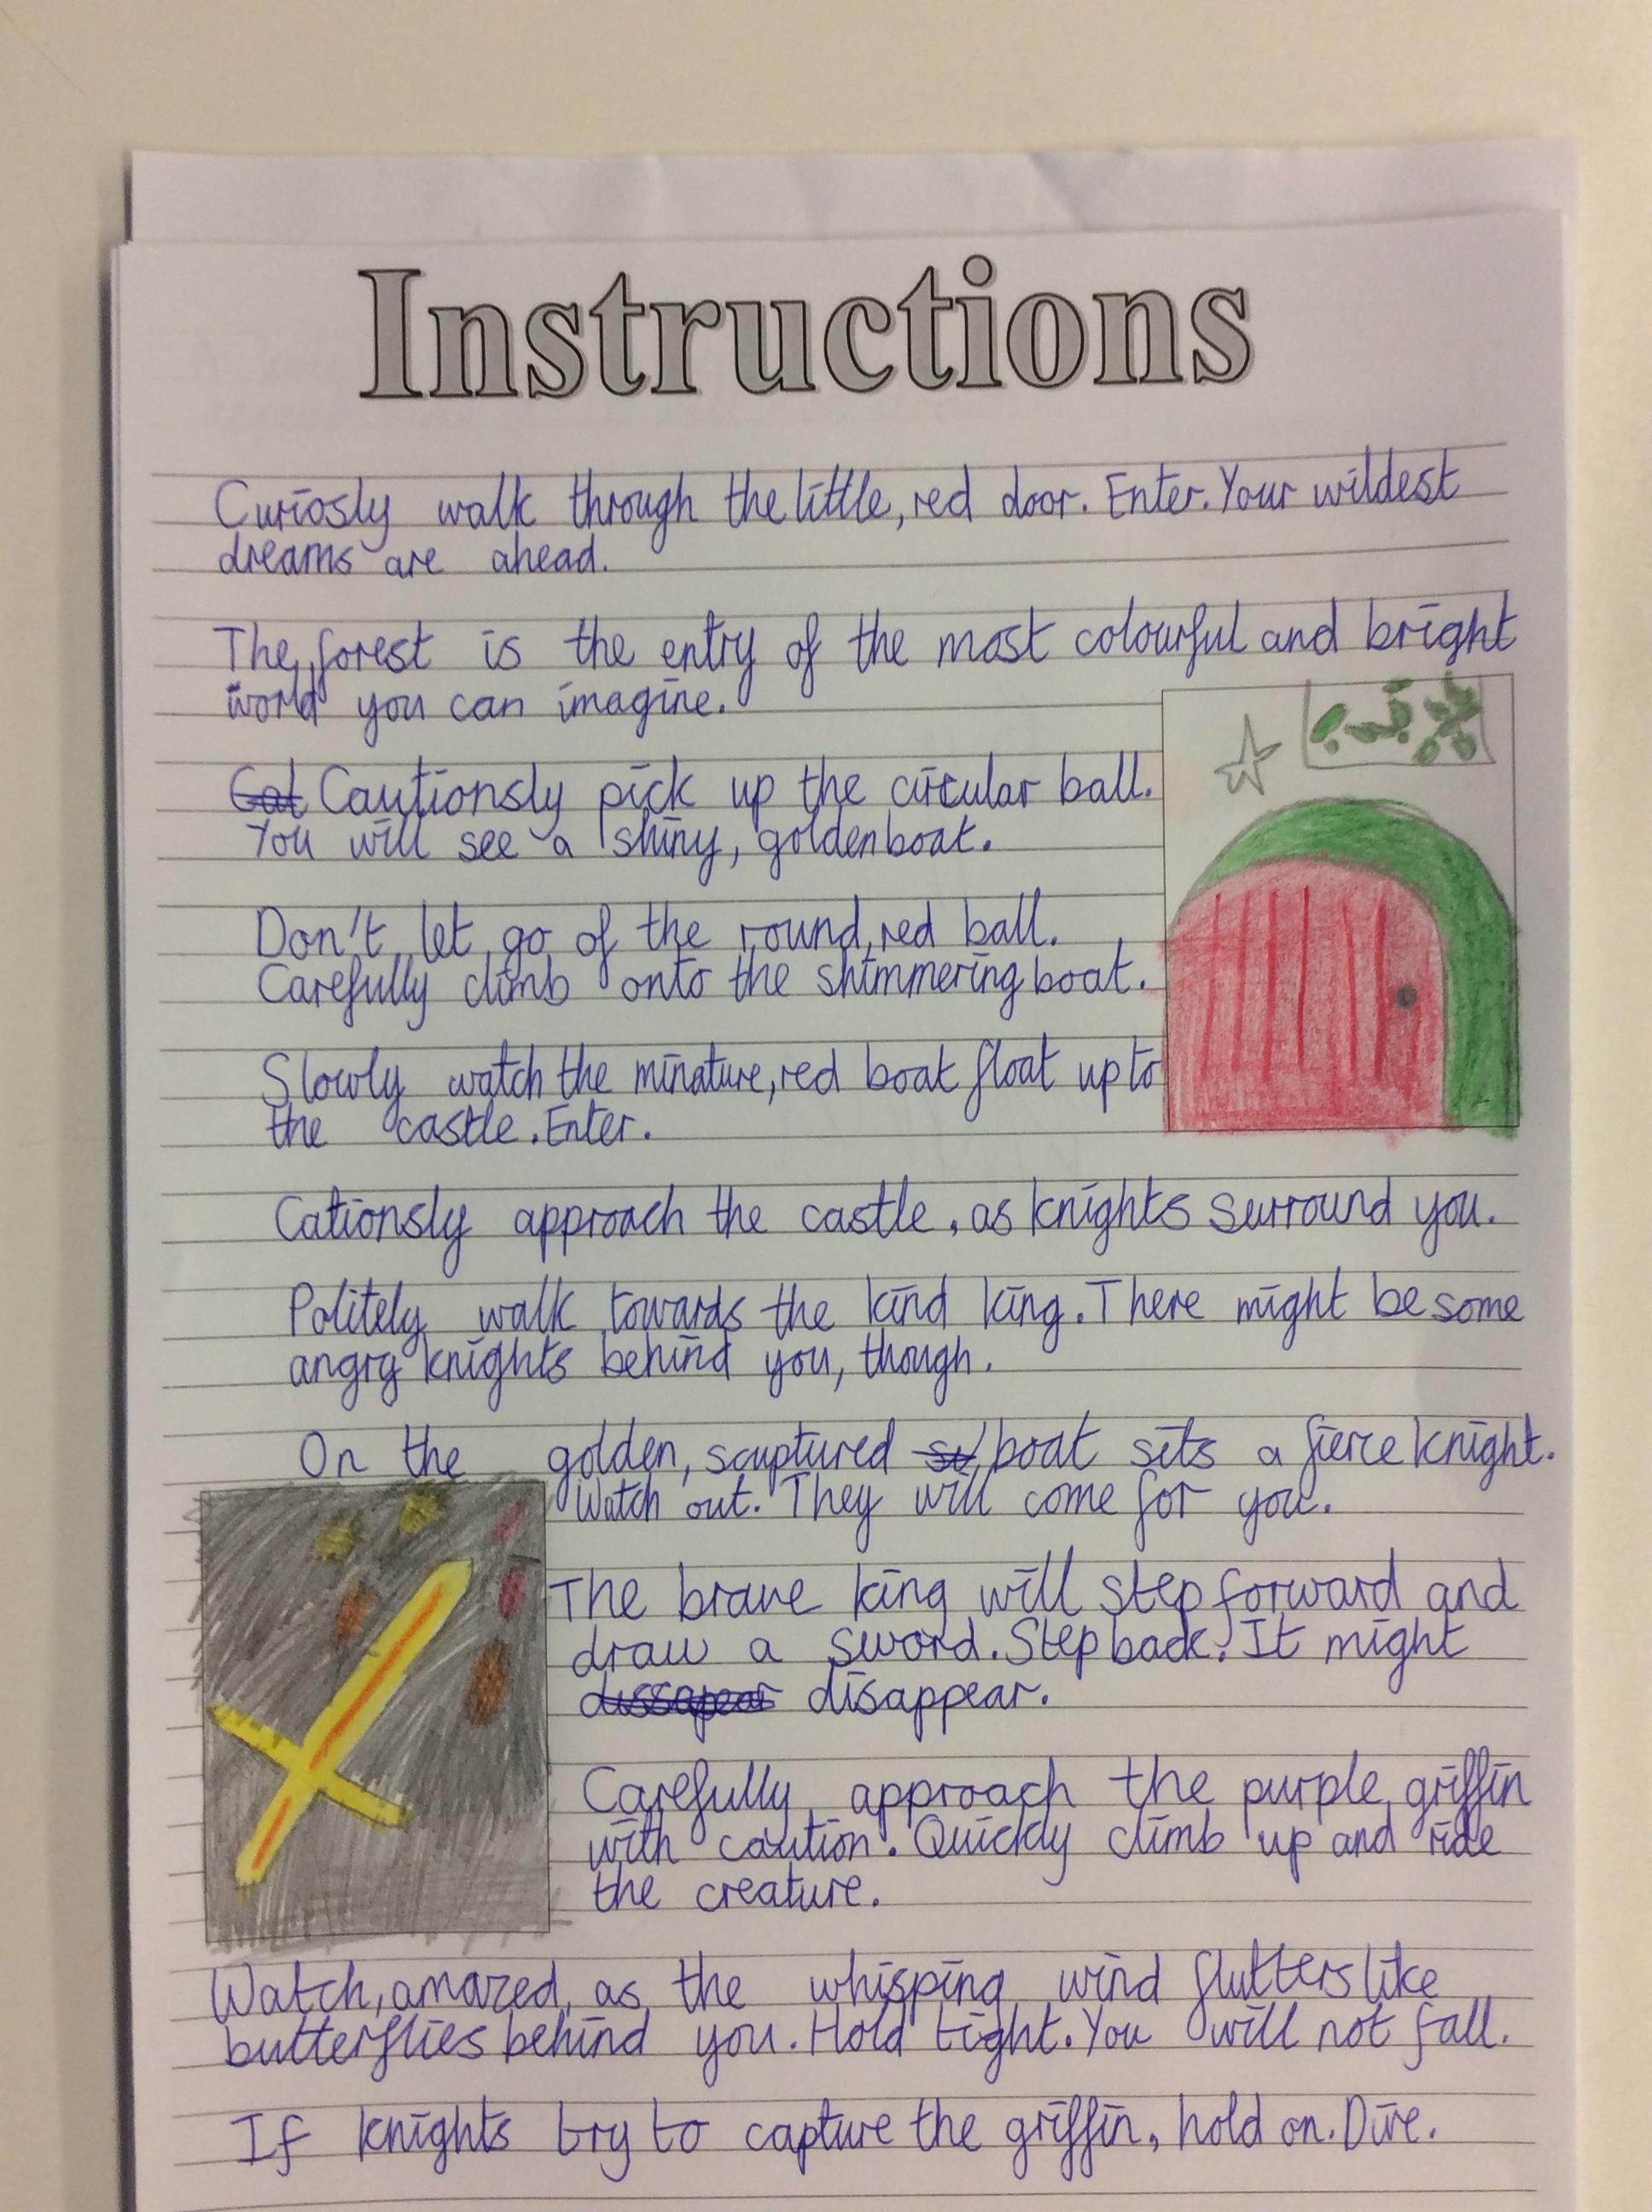 Instructions
Curiosly walk through the little, red door. Enter. Your wildest
dreams are ahead.
The forest is the entry of the most colourful and bright
world you can imagine.
Cat Cautionsly pick up the circular ball.
You will see a shiny, golden boat.
Don't let go of the round, red ball.
Carefully climb onto the shimmering boat.
Slowly watch the minature, red boat float up to
the castle. Enter.
Cationsly approach the castle, as knights surround you.
Politely walk towards the kind king. There might be some
angry knights behind you, though.
On the golden, scuptured boat sits a fierce knight.
Watch out. They will come for you.
The brave king will step forward and
draw a sword. Step back. It might
dissapear disappear.
Carefully approach the purple griffin
with caution. Quickly climb up and ride
the creature.
Watch, amazed, as the whisping wind flutters like
butterflies behind you. Hold tight. You will not fall.
If knights try to capture the griffin, hold on. Dive.